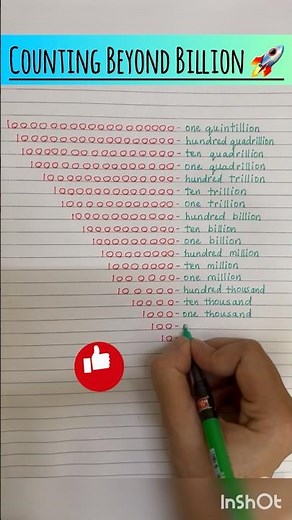 COUNTING BEYOND BILLION 🚀
1000000000000000000 - one quintillion
100000000000000000 - hundred quadrillion
10000000000000000 - ten quadrillion
1000000000000000 - one quadrillion
100000000000000 - hundred trillion
10000000000000 - ten trillion
1000000000000 - one trillion
100000000000 - hundred billion
10000000000 - ten billion
1000000000 - one billion
100000000 - hundred million
10000000 - ten million
1000000 - one million
100000 - hundred thousand
10000 - ten thousand
1000 - one thousand
100 -
10 -
InShOt